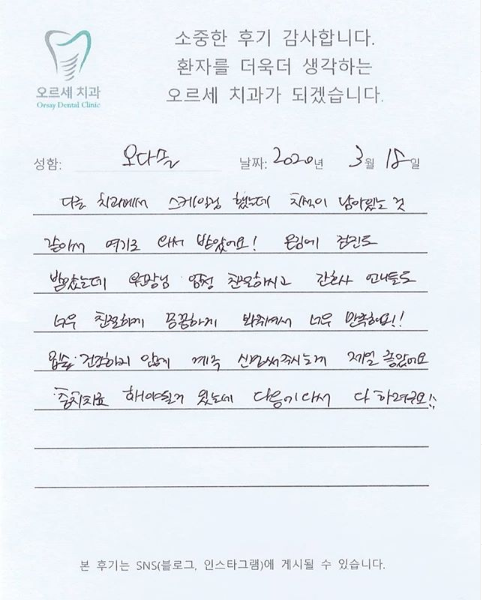 소중한 후기 감사합니다.
환자를 더욱더 생각하는
오르세 치과가 되겠습니다.
오르세 치과
Orsay Dental Clinic
성함: 오다솔 날짜: 2020년 3월 18일
다른 치과에서 스케일링 했는데 치석이 남아있는 것
같아서 여기로 와서 받았어요! 온김에 검진도
받았는데 원장님 엄청 친절하시고 간호사 언니들도
너무 친절하게 꼼꼼하게 봐줘서 너무 만족해요!!
입술 건조하지 않게 계속 신경써주시는게 제일 좋았어요
충치치료 해야될게 있는데 다음에 다시 다 하려구요!!
본 후기는 SNS(블로그, 인스타그램)에 게시될 수 있습니다.